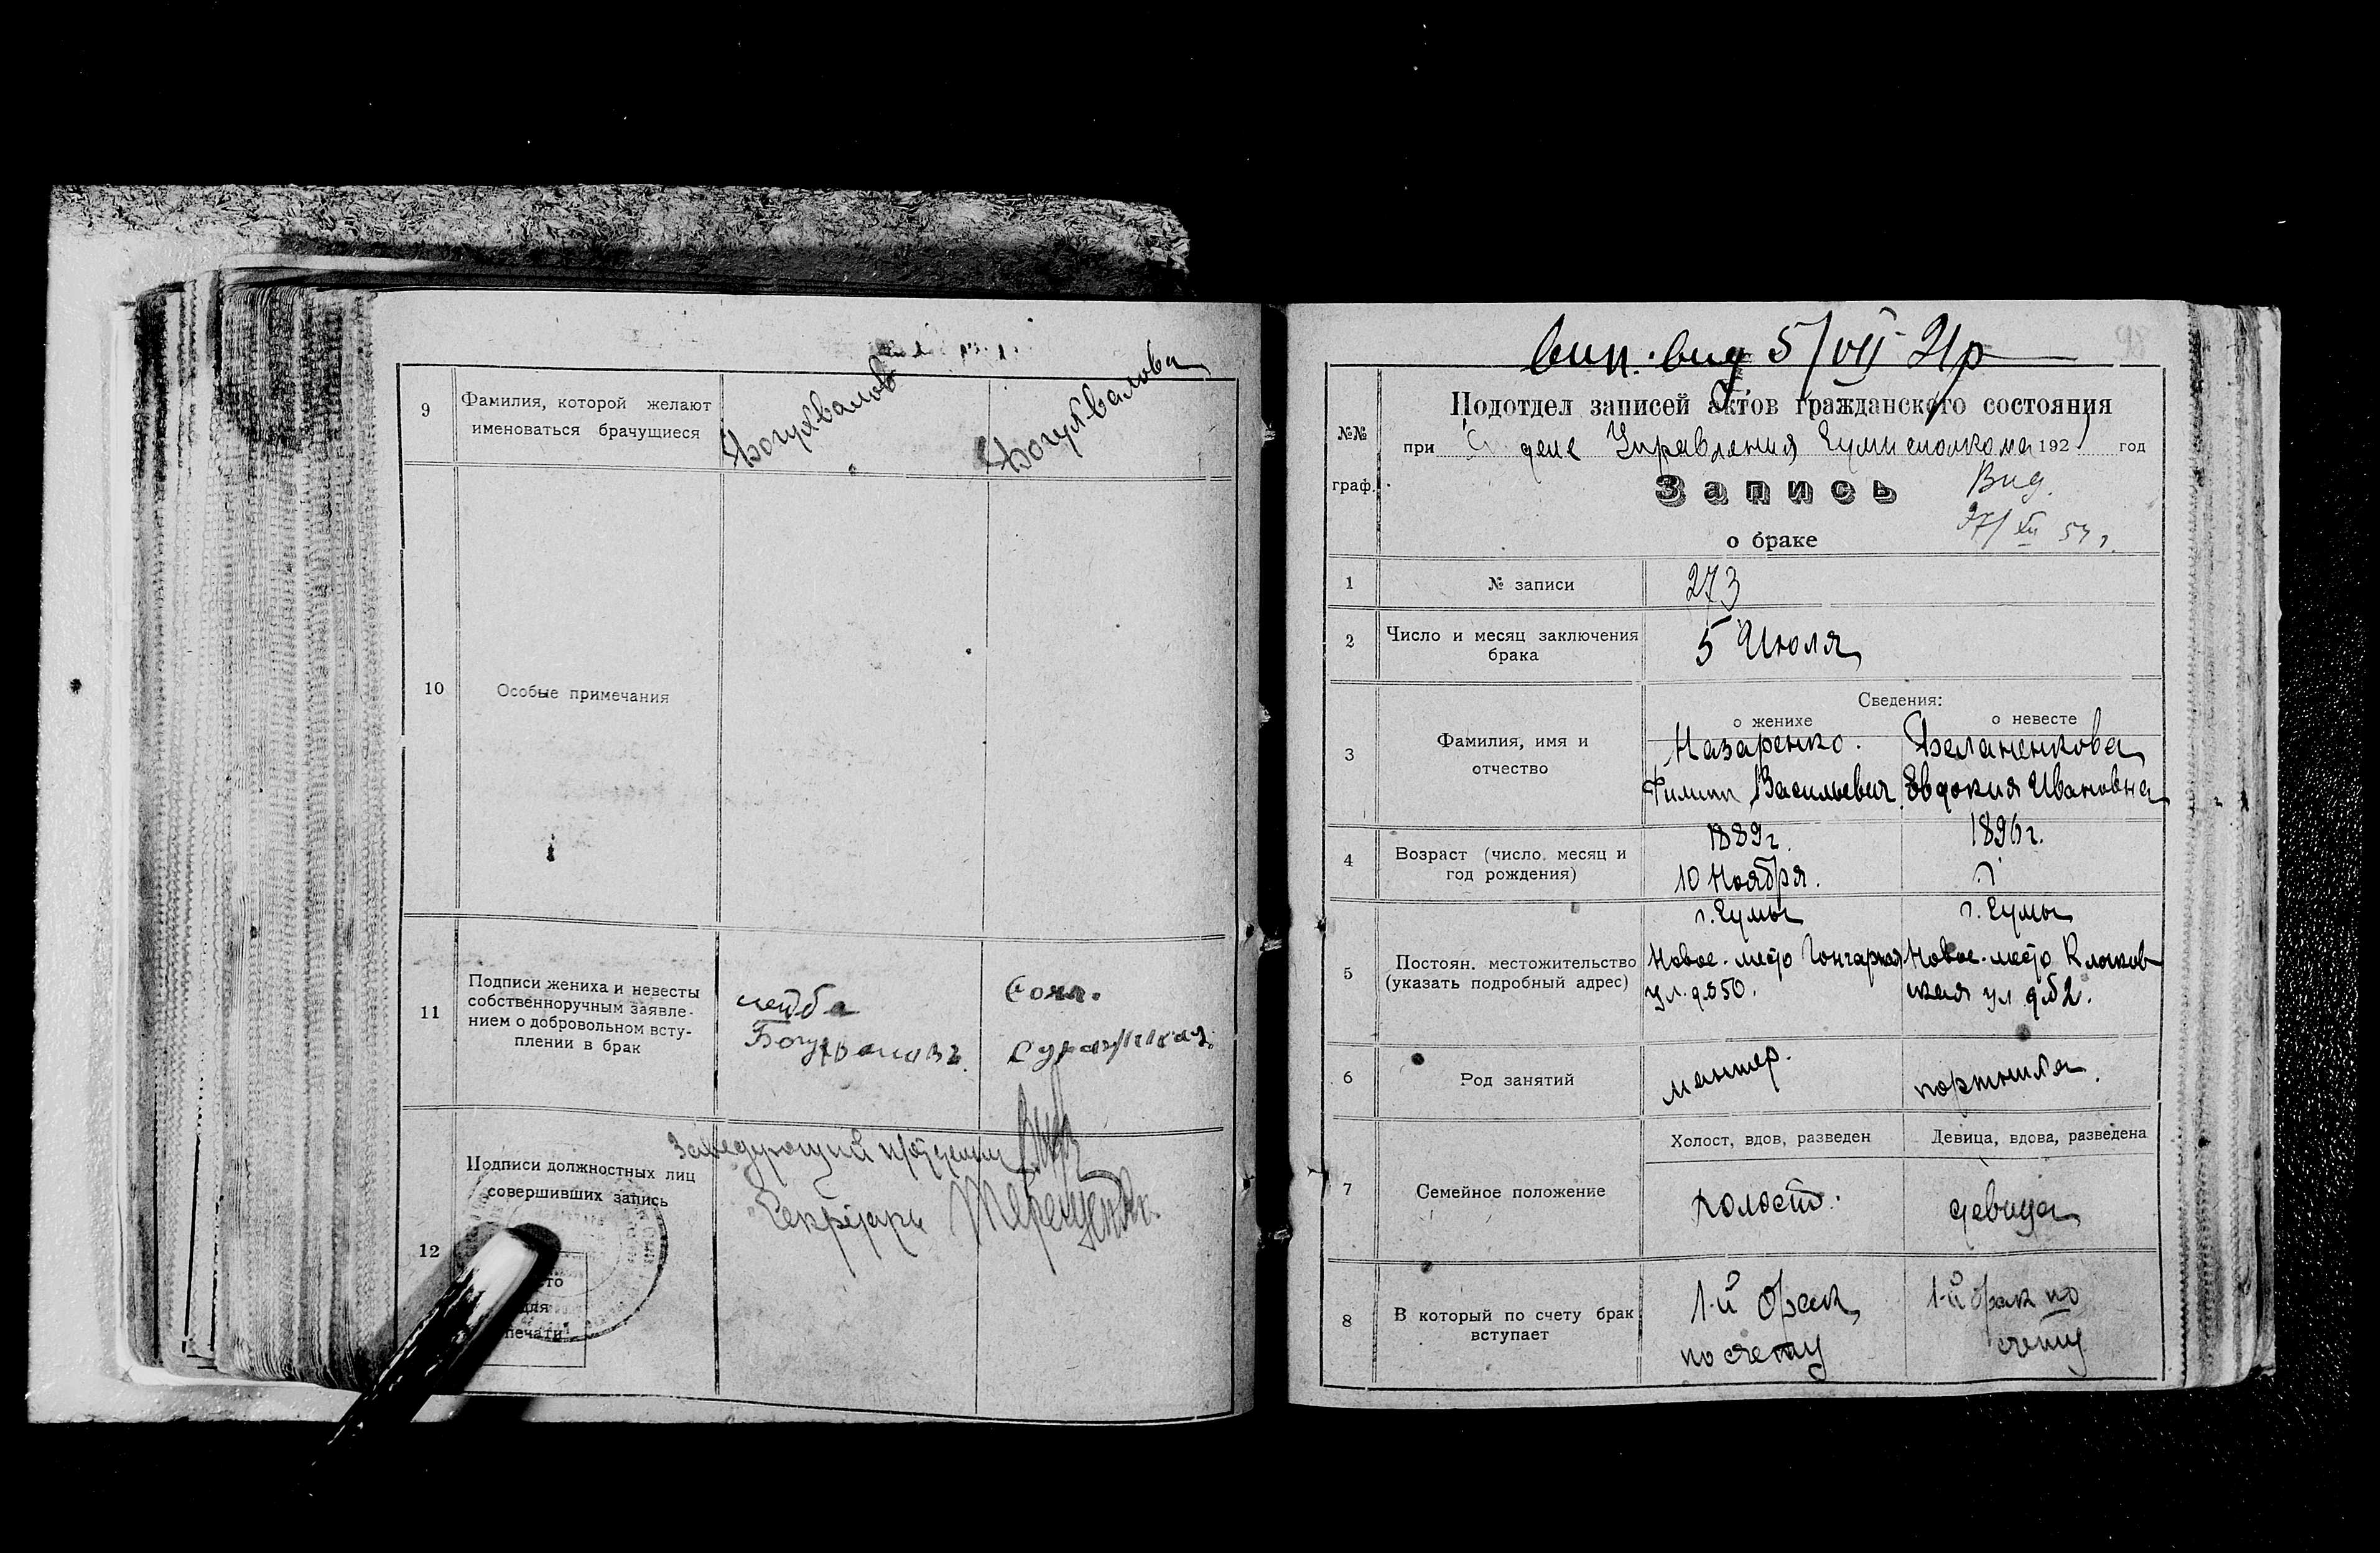 9
Фамилия, которой желают
именоваться брачущиеся
Богухвалов
Богухвалова
10
Особые примечания
11
Подписи жениха и невесты
собственноручным заявле-
нием о добровольном всту-
плении в брак
Богухваловъ
12
Подписи должностных лиц
совершивших запись
Заведующий
Секретарь Терещенко
для
печати
вип. вид 5/VII 21р
№№
граф.
Подотдел записей актов гражданского состояния
при деле Управления Сумисполкома 1921 год
Запись
о браке
Вид.
27/XII
1
№ записи
273
2
Число и месяц заключения
брака
5 Июля
Сведения:
о женихе
о невесте
3
Фамилия, имя и
отчество
Назаренко.
Филипп Васильевич
Евдокия Ивановна
4
Возраст (число, месяц и
год рождения)
1889г.
10 Ноября.
1896г.
5
Постоян. местожительство
(указать подробный адрес)
г. Сумы
Новое-место Гончарная
ул. д.№50.
г. Сумы
Новое-место
ская ул. д.№2.
6
Род занятий
портниха.
7
Семейное положение
Холост, вдов, разведен
Девица, вдова, разведена
холост.
девица
8
В который по счету брак
вступает
1-й брак
по счету
1-й брак по
счету